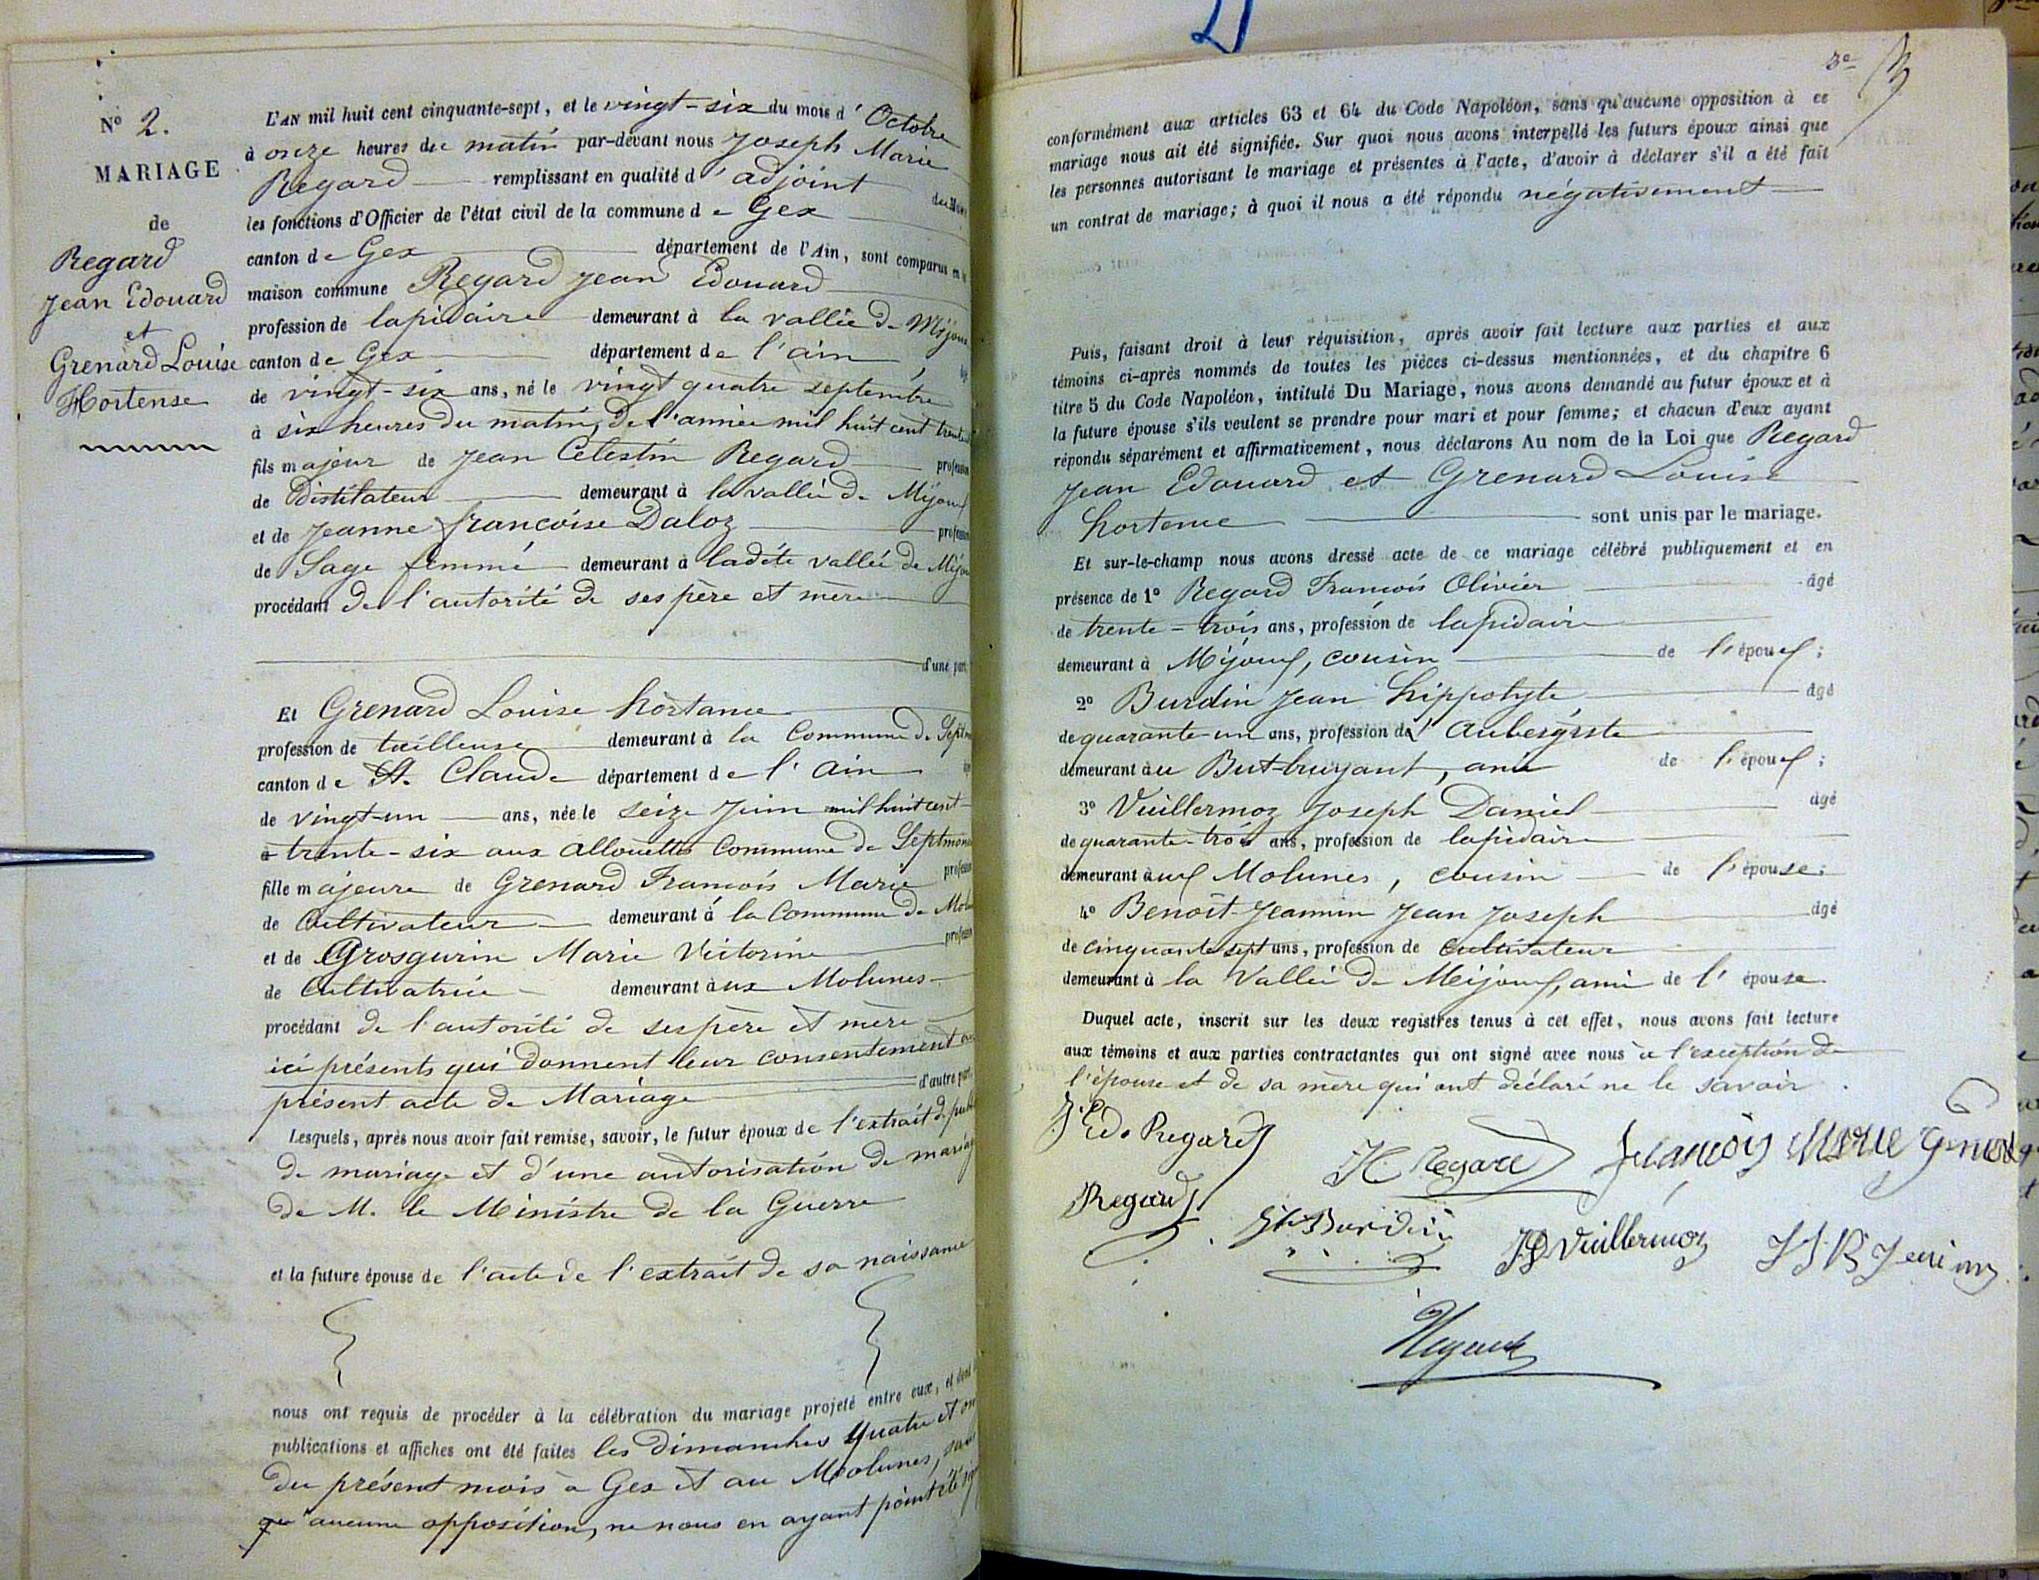 Nº 2.
MARIAGE
de
Regard
Jean Edouard
et
Grenard Louise
Hortense
L'AN mil huit cent cinquante-sept, et le vingt-six du mois d'Octobre
à onze heures du matin par-devant nous Joseph Marie
Regard remplissant en qualité d'adjoint
les fonctions d'Officier de l'état civil de la commune de Gex
canton de Gex département de l'Ain, sont comparus en
maison commune Regard Jean Edouard
profession de lapidaire demeurant à la vallée de Mijoux
canton de Gex département de l'ain
de vingt-six ans, né le vingt quatre septembre
à six heures du matin, de l'année mil huit cent
fils majeur de Jean Célestin Regard profession
de Distilateur demeurant à la vallée de Mijoux
et de Jeanne françoise Daloz profession
de Sage femme demeurant à ladite vallée de Mijoux
procédant de l'autorité de ses père et mère
d'une part
Et Grenard Louise hortance
profession de tailleuse demeurant à la Commune de
canton de St. Claude département de l'ain
de vingt-un ans, née le seize Juin mil huit cent
trente-six aux allouettes Commune de
fille majeure de Grenard François Marie profession
de Cultivateur demeurant à la Commune de
et de Grosgurin Marie Victorine profession
de Cultivatrice demeurant aux Molunes
procédant de l'autorité de ses père et mère
ici présents qui donnent leur consentement au
présent acte de Mariage d'autre part
Lesquels, après nous avoir fait remise, savoir, le futur époux de l'extrait de
de mariage et d'une autorisation de mariage
de M. le Ministre de la Guerre
et la future épouse de l'acte de l'extrait de sa naissance
nous ont requis de procéder à la célébration du mariage projeté entre eux, et dont
publications et affiches ont été faites les dimanches quatre et
du présent mois à Gex et au Molunes,
qu'aucune opposition, ne nous en ayant point été
3e
conformément aux articles 63 et 64 du Code Napoléon, sans qu'aucune opposition à ce
mariage nous ait été signifiée. Sur quoi nous avons interpellé les futurs époux ainsi que
les personnes autorisant le mariage et présentes à l'acte, d'avoir à déclarer s'il a été fait
un contrat de mariage; à quoi il nous a été répondu négativement
Puis, faisant droit à leur réquisition, après avoir fait lecture aux parties et aux
témoins ci-après nommés de toutes les pièces ci-dessus mentionnées, et du chapitre 6
titre 5 du Code Napoléon, intitulé Du Mariage, nous avons demandé au futur époux et à
la future épouse s'ils veulent se prendre pour mari et pour femme; et chacun d'eux ayant
répondu séparément et affirmativement, nous déclarons Au nom de la Loi que Regard
Jean Edouard et Grenard Louise
hortense sont unis par le mariage.
Et sur-le-champ nous avons dressé acte de ce mariage célébré publiquement et en
présence de 1º Regard François Olivier âgé
de trente-trois ans, profession de lapidaire
demeurant à Mijoux, cousin de l'époux;
2º Burdin Jean hippolyte âgé
de quarante-un ans, profession de l'Aubergiste
demeurant au But-bruyant, ami de l'époux;
3º Vuillermoz Joseph Daniel âgé
de quarante-trois ans, profession de lapidaire
demeurant aux Molunes, cousin de l'épouse;
4º Benoit-Jeannin Jean Joseph âgé
de cinquante sept ans, profession de Cultivateur
demeurant à la Vallée de Meijoux, ami de l'épouse
Duquel acte, inscrit sur les deux registres tenus à cet effet, nous avons fait lecture
aux témoins et aux parties contractantes qui ont signé avec nous à l'exception de
l'épouse et de sa mère qui ont déclaré ne le savoir.
J. Ed. Regard
Regard françois Marie
Regard
Burdin
JD Vuillermoz
JJ B Jenin
Regard